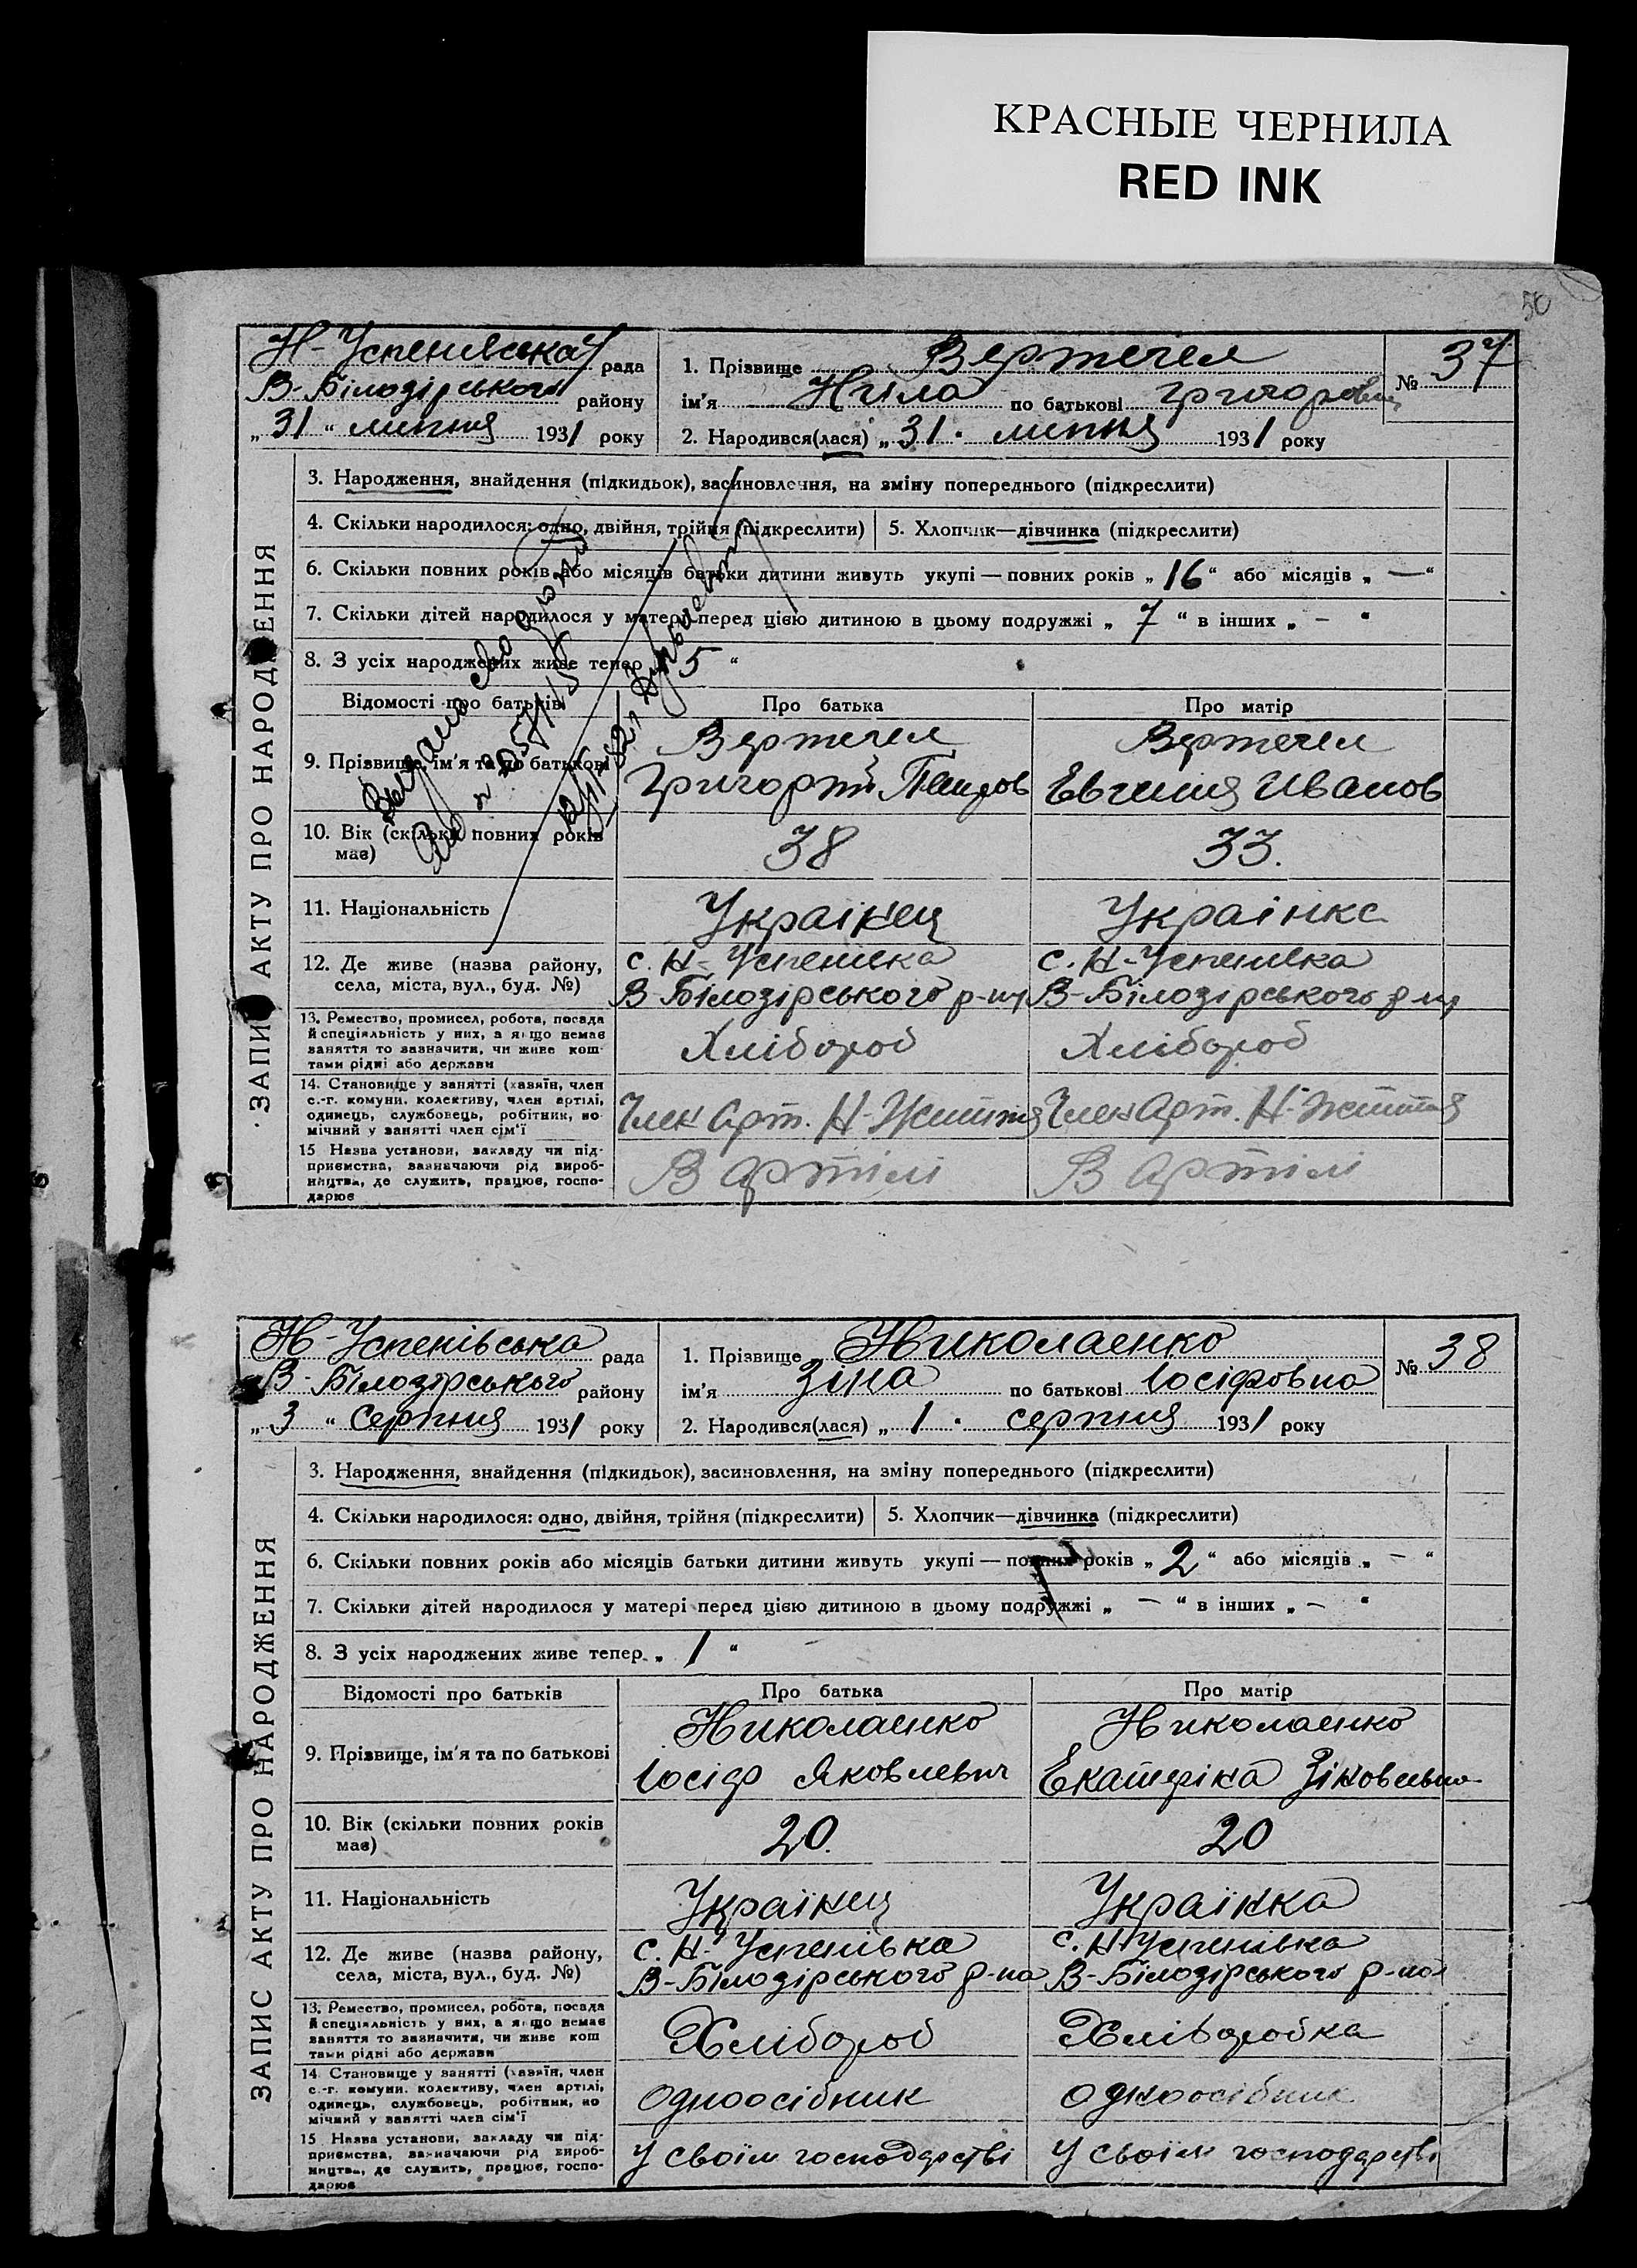 КРАСНЫЕ ЧЕРНИЛА
RED INK
50
Н-Успенивська рада
В-Білозірського району
„31“ липня 1931 року
1. Прізвище Вертечел
№ 37
ім'я Нила по батькові Григоровн
2. Народився(лася) „31. липня 1931 року
ЗАПИС АКТУ ПРО НАРОДЖЕННЯ
3. Народження, знайдення (підкидьок), засиновлення, на зміну попереднього (підкреслити)
4. Скільки народилося: одно, двійня, трійня (підкреслити)
5. Хлопчик—дівчинка (підкреслити)
6. Скільки повних років або місяців батьки дитини живуть укупі — повних років „16“ або місяців „—“
7. Скільки дітей народилося у матері перед цією дитиною в цьому подружжі „7“ в інших „-“
8. З усіх народжених живе тепер „5“
Відомості про батьків
Про батька
Про матір
9. Прізвище, ім'я та по батькові
Вертечел
Григорій Петров
Вертечел
Евгения Иванов
10. Вік (скільки повних років має)
38
33.
11. Національність
Українец
Українка
12. Де живе (назва району, села, міста, вул., буд. №)
с. Н-Успенивка
В-Білозірського р-ну
с. Н-Успенивка
В-Білозірського р-ну
13. Ремество, промисел, робота, посада
й спеціяльність у них, а якщо немає
заняття то зазначити, чи живе кош-
тами рідні або держави
Хлібороб
Хлібороб
14. Становище у занятті (хазяїн, член
с.-г. комуни, колективу, член артілі,
одинець, службовець, робітник, по
мічний у занятті член сім'ї
Член Арт. Н-Життя
Член Арт. Н-Життя
15 Назва установи, закладу чи під-
приємства, зазначаючи рід вироб-
ництва, де служить, працює, госпо-
дарює
В Артілі
В Артілі
Н-Успенівська рада
В-Білозірського району
„3“ Серпня 1931 року
1. Прізвище Николаенко
№ 38
ім'я Зіна по батькові Іосіфовна
2. Народився(лася) „1. серпня 1931 року
ЗАПИС АКТУ ПРО НАРОДЖЕННЯ
3. Народження, знайдення (підкидьок), засиновлення, на зміну попереднього (підкреслити)
4. Скільки народилося: одно, двійня, трійня (підкреслити)
5. Хлопчик—дівчинка (підкреслити)
6. Скільки повних років або місяців батьки дитини живуть укупі — повних років „2“ або місяців „-“
7. Скільки дітей народилося у матері перед цією дитиною в цьому подружжі „—“ в інших „-“
8. З усіх народжених живе тепер „1“
Відомості про батьків
Про батька
Про матір
9. Прізвище, ім'я та по батькові
Николаенко
Іосіф Яковлевич
Николаенко
Екатеріна
10. Вік (скільки повних років має)
20.
20
11. Національність
Українец
Українка
12. Де живе (назва району, села, міста, вул., буд. №)
с. Н-Успенівка
В-Білозірського р-на
с. Н-Успенівка
В-Білозірського р-на
13. Ремество, промисел, робота, посада
й спеціяльність у них, а якщо немає
заняття то зазначити, чи живе кош
тами рідні або держави
Хлібороб
Хліборобка
14 Становище у занятті (хазяїн, член
с.-г. комуни, колективу, член артілі,
одинець, службовець, робітник, по
мічний у занятті член сім'ї
Одноосібник
Одноосібник
15 Назва установи, закладу чи під-
приємства, зазначаючи рід вироб-
ництва, де служить, працює, госпо-
дарює
У своїм господарстві
У своїм господарстві